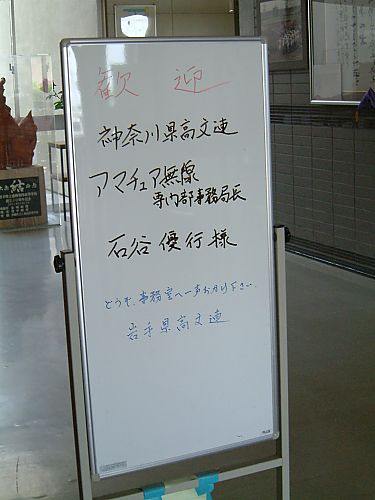 歓迎
神奈川県高文連
アマチュア無線
専門部事務局長
石谷優行様
どうぞ、事務室へ一声お掛け下さい.
岩手県高文連